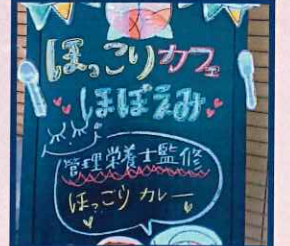 ほっこりカフェ
ほほえみ
管理栄養士監修
ほっこりカレー